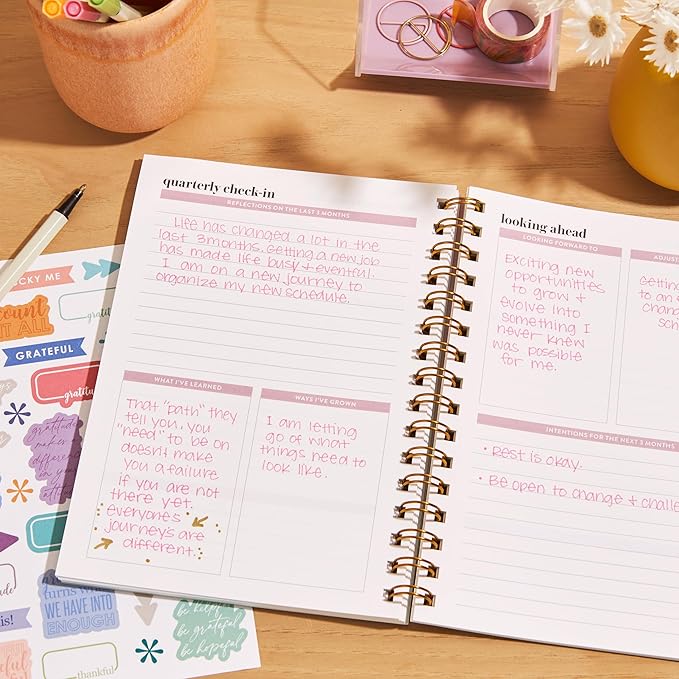 quarterly check-in
REFLECTIONS ON THE LAST 3 MONTHS
Life has changed a lot in the
last 3 months. Getting a new job
has made life busy + eventful.
I am on a new journey to
organize my new schedule.
WHAT I'VE LEARNED
That "path" they
tell you, you
"need" to be on
doesn't make
you a failure
if you are not
there yet.
everyones
journey's are
different.
WAYS I'VE GROWN
I am letting
go of what
things need to
look like.
looking ahead
LOOKING FORWARD TO
Exciting new
opportunities
to grow +
evolve into
something I
never knew
was possible
for me.
ADJUST
Getting
to an
chang
sch
INTENTIONS FOR THE NEXT 3 MONTHS
• Rest is okay.
• Be open to change + challe
CKY ME
count
IT ALL
grat
GRATEFUL
gratitud
gratitude
makes
different
turns what
WE HAVE INTO
ENOUGH
THIS!
thankful
be helpful
be grateful
be hopeful